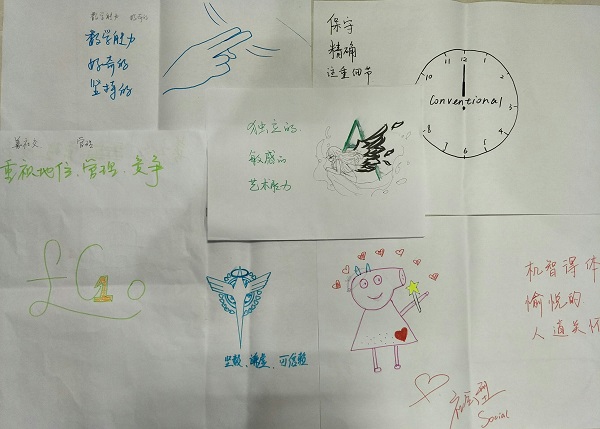 数学能力
好奇的
坚持的
保守
精确
注重细节
12
1
2
3
4
5
6
7
8
10
11
Conventional
独立的
敏感的
艺术能力
A
管理
重视地位、管理、竞争
坚毅、谦虚、可信赖
机智得体
愉悦的
人道关怀
社会型
Social